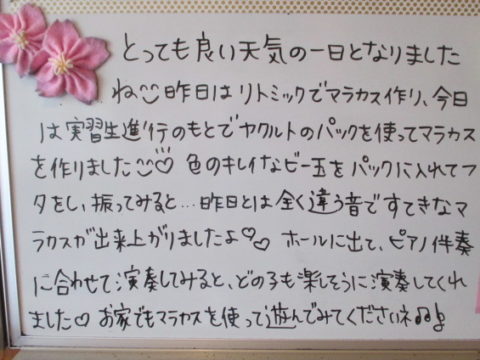 とっても良い天気の一日となりました
ね 昨日はリトミックでマラカス作り、今日
は実習生進行のもとでヤクルトのパックを使ってマラカス
を作りました♡ 色のキレイなビー玉をパックに入れてフ
タをし、振ってみると…昨日とは全く違う音ですてきなマ
ラカスが出来上がりましたよ♡♡ ホールに出て、ピアノ伴奏
に合わせて演奏してみると、どの子も楽しそうに演奏してくれ
ました♡ お家でもマラカスを使って遊んでみてくださいネ♫♪